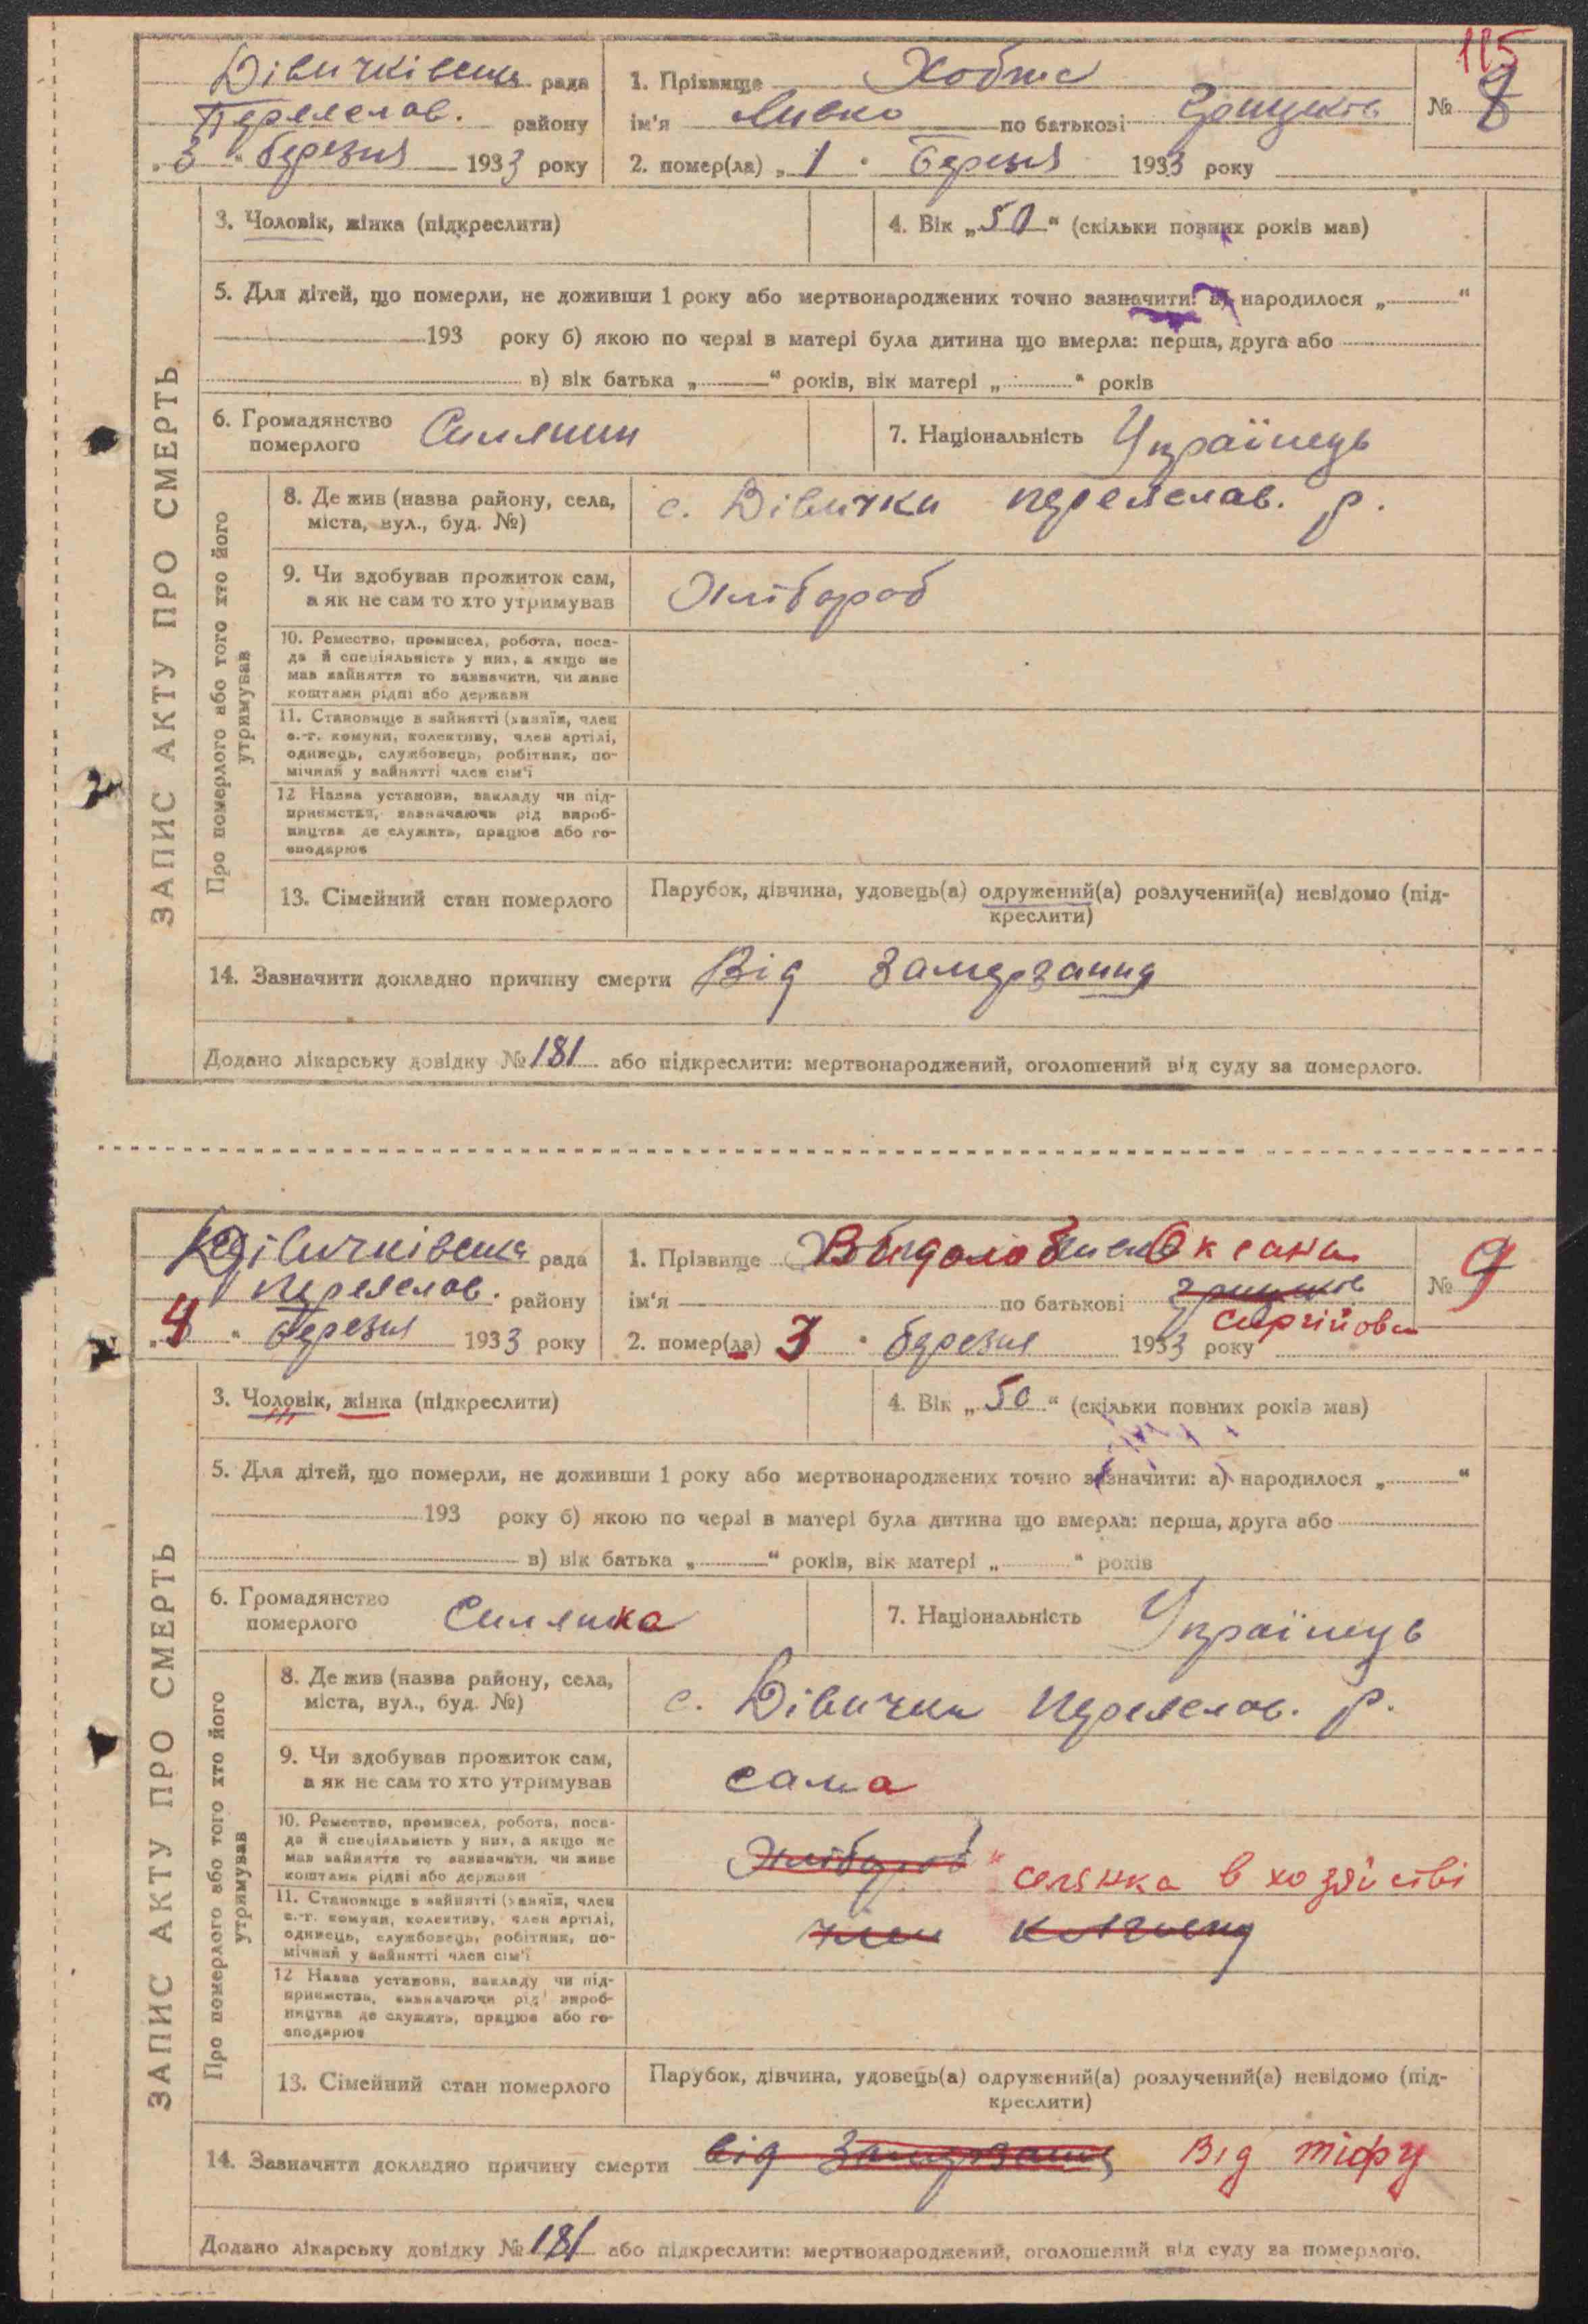 115
Дівичківська рада
Переяслав. району
„3“ березня 1933 року
1. Прізвище Хобта
ім'я по батькові Грицьків
№ 8
2. помер(ла) „1“ Березня 1933 року
ЗАПИС АКТУ ПРО СМЕРТЬ
3. Чоловік, жінка (підкреслити)
4. Вік „50“ (скільки повних років мав)
5. Для дітей, що померли, не доживши 1 року або мертвонароджених точно зазначити: а) народилося „ “
193 року б) якою по черзі в матері була дитина що вмерла: перша, друга або
в) вік батька „ “ років, вік матері „ “ років
6. Громадянство померлого Силянин
7. Національність Українець
Про померлого або того хто його утримував
8. Де жив (назва району, села, міста, вул., буд. №) с. Дівички переяслав. р.
9. Чи здобував прожиток сам, а як не сам то хто утримував Хлібороб
10. Ремество, промисел, робота, поса-
да й спеціяльність у них, а якщо не
мав зайняття то зазначити, чи живе
коштами рідні або держави
11. Становище в зайнятті (хазяїн, член
с.-г. комуни, колективу, член артілі,
одинець, службовець, робітник, по-
мічний у зайнятті член сім'ї
12 Назва установи, закладу чи під-
приємства, зазначаючи рід вироб-
ництва де служить, працює або го-
сподарює
13. Сімейний стан померлого Парубок, дівчина, удовець(а) одружений(а) розлучений(а) невідомо (під-
креслити)
14. Зазначити докладно причину смерти Від Замерзання
Додано лікарську довідку № 181 або підкреслити: мертвонароджений, оголошений від суду за померлого.
Дівичківська рада
переяслав. району
„4“ березня 1933 року
1. Прізвище Оксана
ім'я по батькові Грицьків
Сергійовна
№ 9
2. помер(ла) 3 „ березня 1933 року
ЗАПИС АКТУ ПРО СМЕРТЬ
3. Чоловік, жінка (підкреслити)
4. Вік „50“ (скільки повних років мав)
5. Для дітей, що померли, не доживши 1 року або мертвонароджених точно зазначити: а) народилося „ “
193 року б) якою по черзі в матері була дитина що вмерла: перша, друга або
в) вік батька „ “ років, вік матері „ “ років
6. Громадянство померлого Силянка
7. Національність Українець
Про померлого або того хто його утримував
8. Де жив (назва району, села, міста, вул., буд. №) с. Дівички переяслав. р.
9. Чи здобував прожиток сам, а як не сам то хто утримував сама
10. Ремество, промисел, робота, поса-
да й спеціяльність у них, а якщо не
мав зайняття то зазначити, чи живе
коштами рідні або держави
Хлібороб селянка в хозяйстві
11. Становище в зайнятті (хазяїн, член
с.-г. комуни, колективу, член артілі,
одинець, службовець, робітник, по-
мічний у зайнятті член сім'ї
член
12 Назва установи, закладу чи під-
приємства, зазначаючи рід вироб-
ництва де служить, працює або го-
сподарює
13. Сімейний стан померлого Парубок, дівчина, удовець(а) одружений(а) розлучений(а) невідомо (під-
креслити)
14. Зазначити докладно причину смерти від Замерзання Від тіфу
Додано лікарську довідку № 181 або підкреслити: мертвонароджений, оголошений від суду за померлого.